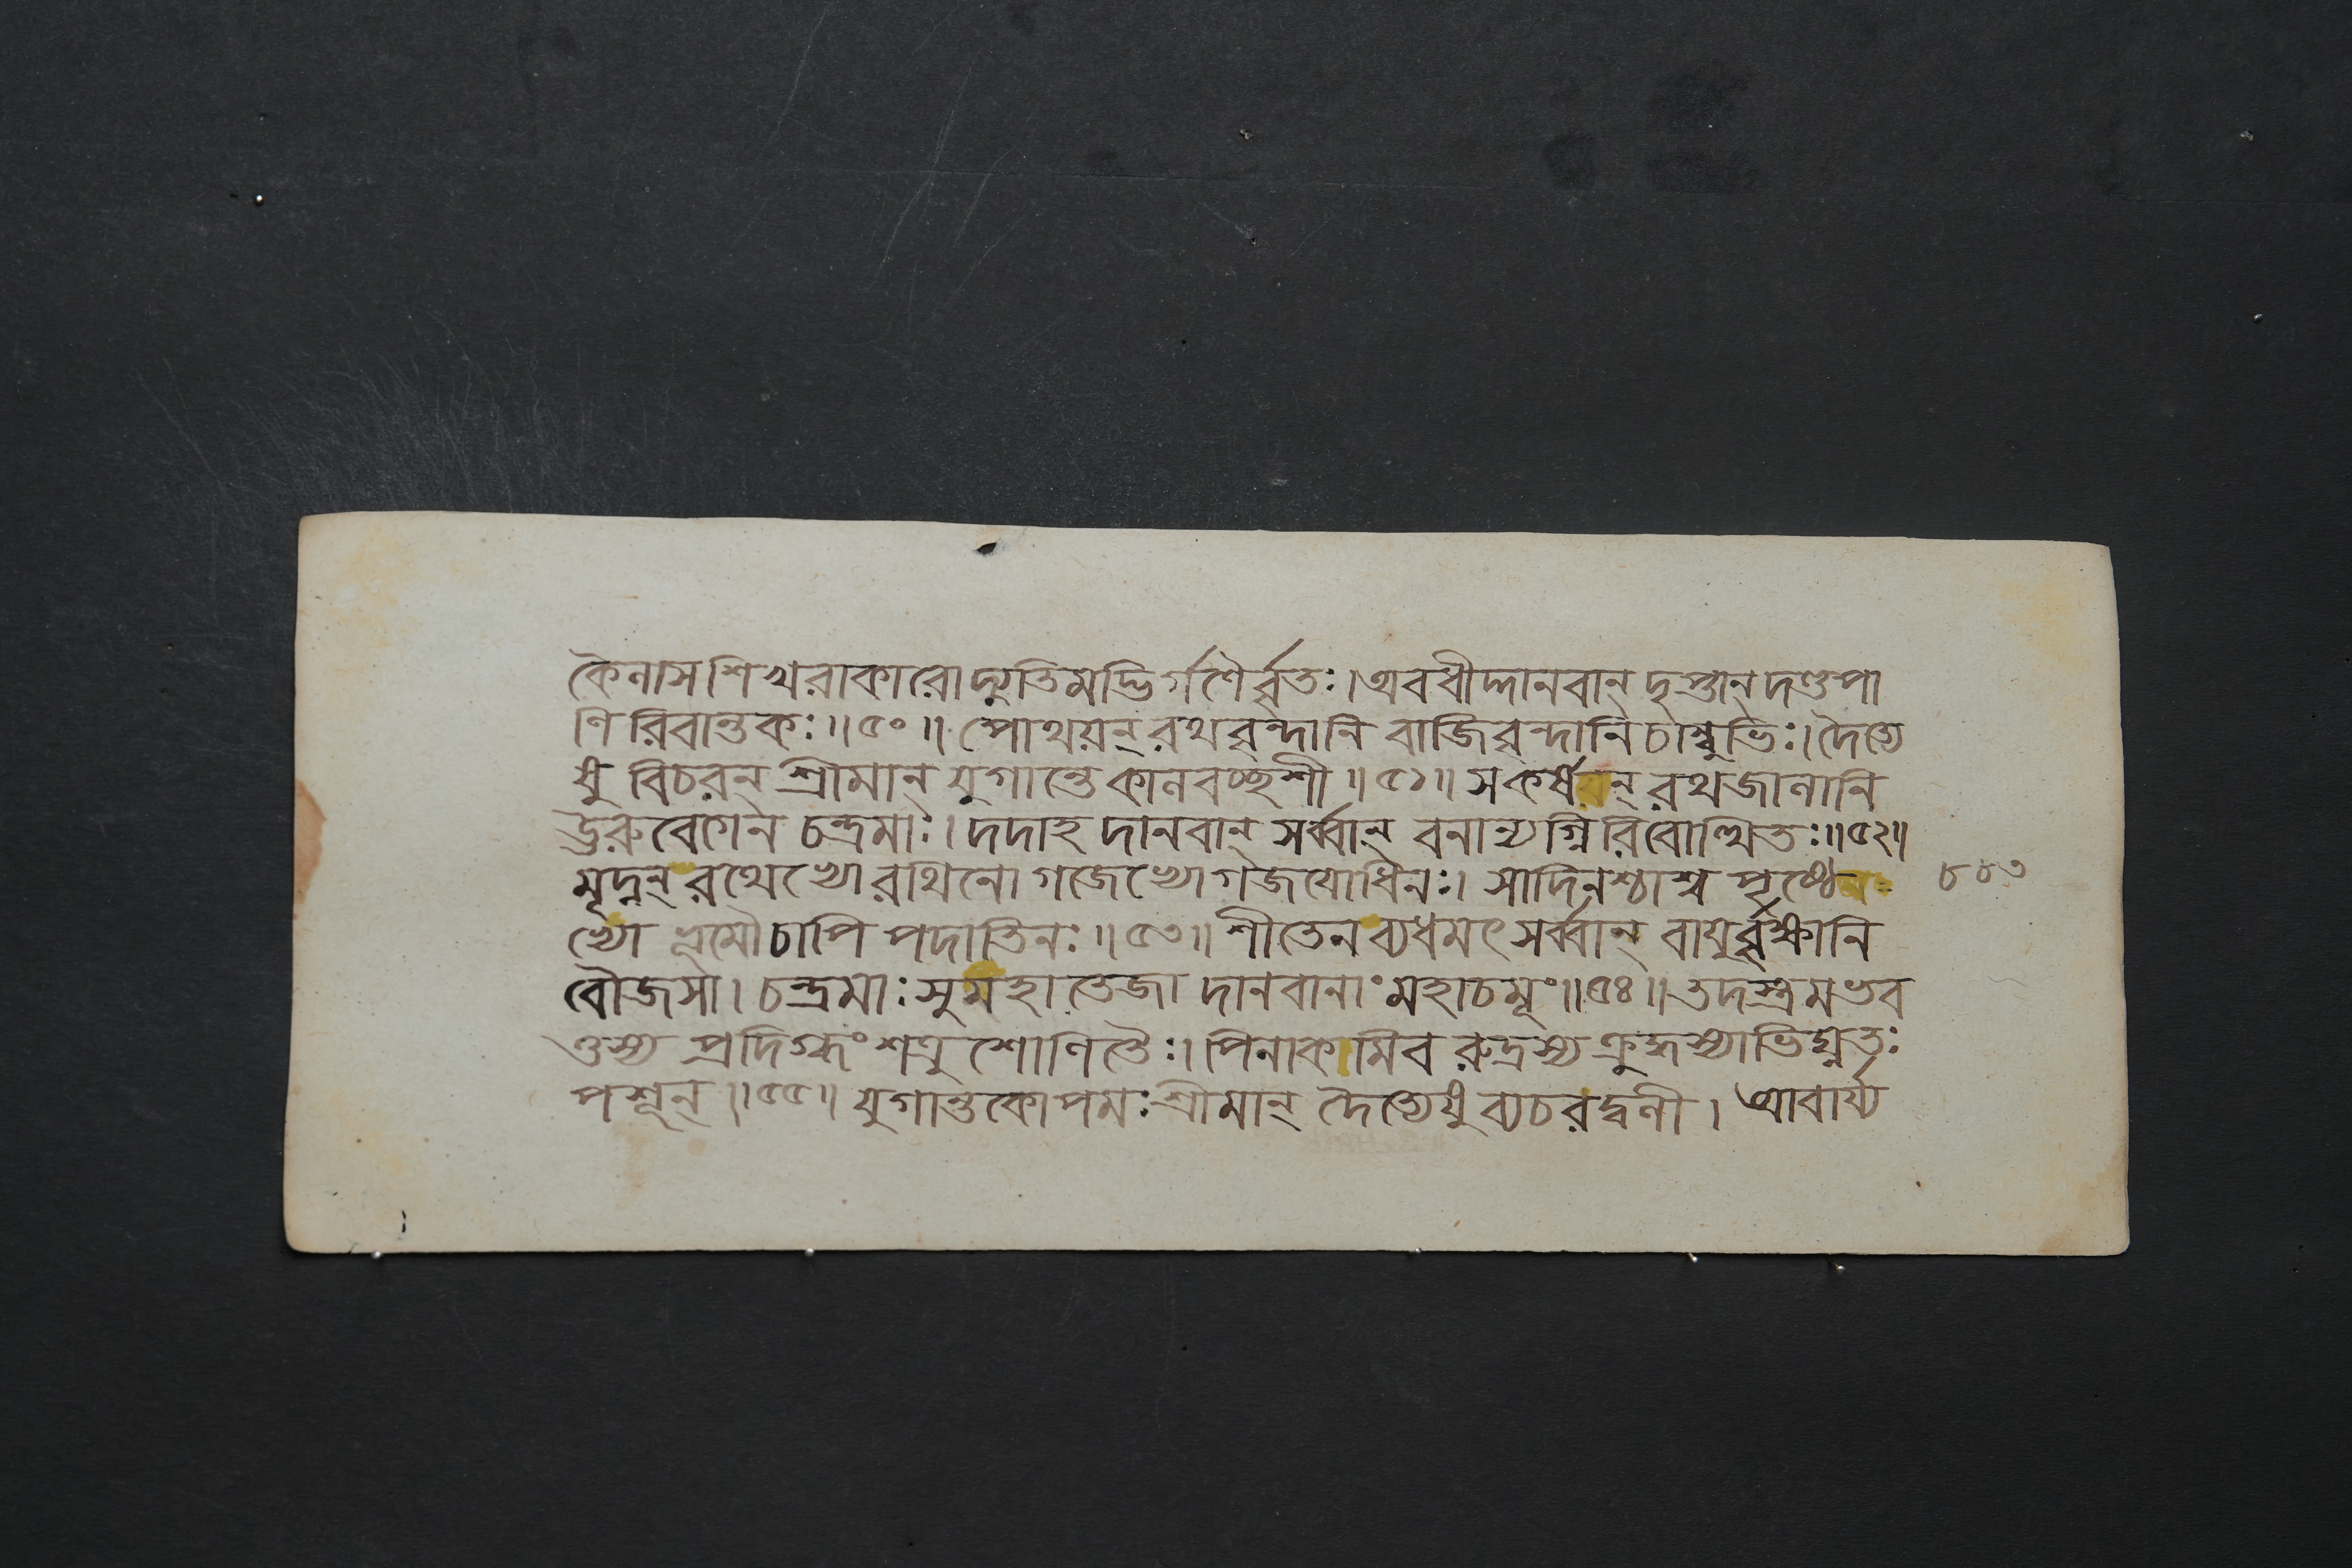 কৈলাসশিখরাকারো দ্যুতিমদ্ভির্গণৈর্বৃতঃ। অবধীদ্দানবান্ দৃপ্তান্ দণ্ডপা
ণিরিবান্তকঃ॥৫০॥ পোথয়ন্ রথবৃন্দানি বাজিবৃন্দানি চাম্বুভিঃ। দৈত্যে
ষু বিচরন্ শ্রীমান্ যুগান্তে কালবচ্ছশী॥৫১॥ সকর্ষয়ন্ রথজালানি
ঊরুবেগেন চন্দ্রমাঃ। দদাহ দানবান্ সর্ব্বান্ বনান্যগ্নিরিবোত্থিতঃ॥৫২॥
মৃদ্নন্ রথেভ্যো রথিনো গজেভ্যো গজযোধিনঃ। সাদিনশ্চাশ্বপৃষ্ঠে
ভ্যো ভূমৌ চাপি পদাতিনঃ॥৫৩॥ শীতেন ব্যধমৎ সর্ব্বান্ বায়ুর্বৃক্ষানি
বৌজসা। চন্দ্রমাঃ সুমহাতেজা দানবানাং মহাচমূং॥৫৪॥ তদস্ত্রমভব
ত্তস্য প্রদিগ্ধং শত্রুশোণিতৈঃ। পিনাকমিব রুদ্রস্য ক্রুদ্ধস্যাভিঘ্নতঃ
পশূন্॥৫৫॥ যুগান্তকোপমঃ শ্রীমান্ দৈত্যেষু ব্যচরদ্বলী। আবার্য্য
৮৮৩